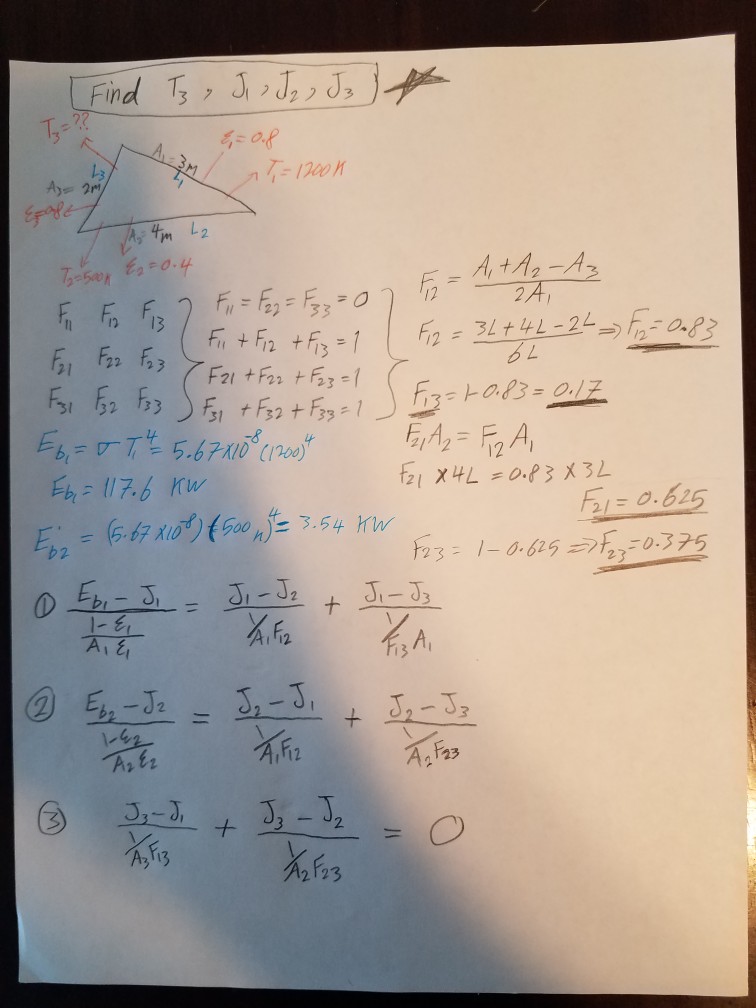 Find T₃, J₁, J₂, J₃
T₃ = ??
A₁ = 3m
ε₁ = 0.8
L₁
T₁ = 1200 K
L₃
A₃ = 2m
ε₃ = 0.8
A₂ = 4m
L₂
T₂ = 500K
ε₂ = 0.4
F₁₁ F₁₂ F₁₃
F₂₁ F₂₂ F₂₃
F₃₁ F₃₂ F₃₃
F₁₁ = F₂₂ = F₃₃ = 0
F₁₁ + F₁₂ + F₁₃ = 1
F₂₁ + F₂₂ + F₂₃ = 1
F₃₁ + F₃₂ + F₃₃ = 1
F₁₂ = (A₁ + A₂ − A₃) / 2A₁
F₁₂ = (3L + 4L − 2L) / 6L ⇒ F₁₂ = 0.83
F₁₃ = 1 − 0.83 = 0.17
F₂₁ A₂ = F₁₂ A₁
F₂₁ × 4L = 0.83 × 3L
F₂₁ = 0.625
F₂₃ = 1 − 0.625 ⇒ F₂₃ = 0.375
E_b₁ = σ T₁⁴ = 5.67 × 10⁻⁸ (1200)⁴
E_b₁ = 117.6 KW
E_b₂ = (5.67 × 10⁻⁸) (500 K)⁴ = 3.54 KW
① (E_b₁ − J₁) / ((1 − ε₁) / (A₁ ε₁)) = (J₁ − J₂) / (1/A₁F₁₂) + (J₁ − J₃) / (1/F₁₃ A₁)
② (E_b₂ − J₂) / ((1 − ε₂) / (A₂ ε₂)) = (J₂ − J₁) / (1/A₁F₁₂) + (J₂ − J₃) / (1/A₂F₂₃)
③ (J₃ − J₁) / (1/A₃F₁₃) + (J₃ − J₂) / (1/A₂F₂₃) = 0